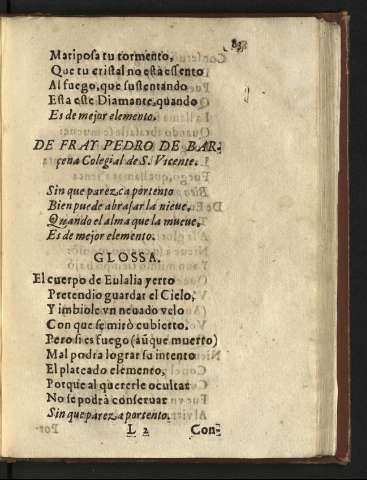 83
Mariposa tu tormento,
Que tu cristal no està essento
Al fuego, que sustentando
Esta este Diamante, quando
Es de mejor elemento.
DE FRAY PEDRO DE BAR-
çena Colegial de S. Vicente.
Sin que parezca portento
Bien puede abrasar la nieue,
Quando el alma que la mueue,
Es de mejor elemento.
GLOSSA.
El cuerpo de Eulalia yerto
Pretendio guardar el Cielo,
Y imbiole vn neuado velo
Con que se mirò cubierto.
Pero si es fuego (aũque muerto)
Mal podra lograr su intento
El plateado elemento,
Porque al quererle ocultar
No se podrà conseruar
Sin que parezca portento.
L 2 Con-